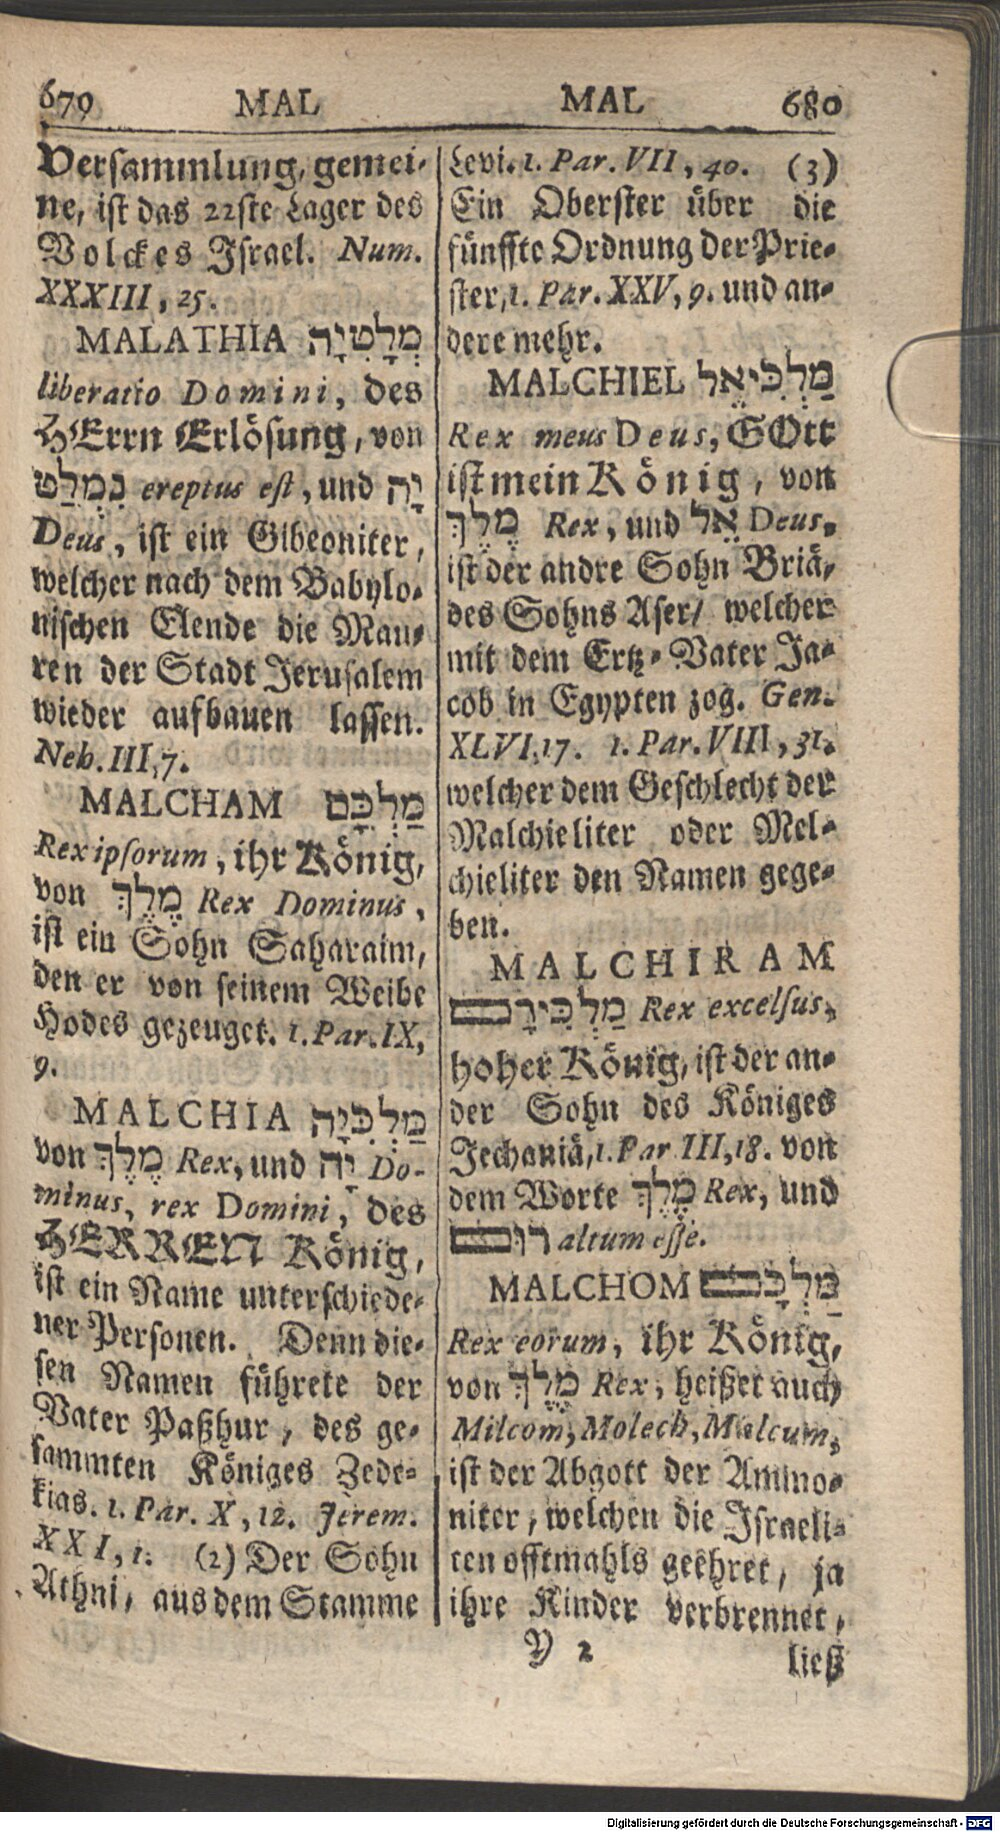 679 MAL
MAL 680
Versammlung, gemei-
ne, ist das 22ste Lager des
Volckes Israel. Num.
XXXIII, 25.
MALATHIA מְלַטְיָה
liberatio Domini, des
HErrn Erlösung, von
נִמְלַט ereptus est, und יָה
Deus, ist ein Gibeoniter,
welcher nach dem Babylo-
nischen Elende die Mau-
ren der Stadt Jerusalem
wieder aufbauen lassen.
Neh. III, 7.
MALCHAM מַלְכָּם
Rex ipsorum, ihr König,
von מֶלֶךְ Rex Dominus,
ist ein Sohn Saharaim,
den er von seinem Weibe
Hodes gezeuget. 1. Par. IX,
9.
MALCHIA מַלְכִּיָה
von מֶלֶךְ Rex, und יָה Do-
minus, rex Domini, des
HERREN König,
ist ein Name unterschiede-
ner Personen. Denn die-
sen Namen führete der
Vater Paßhur, des ge-
sammten Königes Zede-
kias. 1. Par. X, 12. Jerem.
XXI, 1. (2) Der Sohn
Athni, aus dem Stamme
Levi. 1. Par. VII, 40. (3)
Ein Oberster über die
fünffte Ordnung der Prie-
ster, 1. Par. XXV, 9. und an-
dere mehr.
MALCHIEL מַלְכִּיאֵל
Rex meus Deus, GOtt
ist mein König, von
מֶלֶךְ Rex, und אֵל Deus,
ist der andre Sohn Briä,
des Sohns Aser, welcher
mit dem Ertz-Vater Ja-
cob in Egypten zog. Gen.
XLVI, 17. 1. Par. VIII, 31.
welcher dem Geschlecht der
Malchieliter oder Mel-
chieliter den Namen gege-
ben.
MALCHIRAM
מַלְכִּירָם Rex excelsus,
hoher König, ist der an-
der Sohn des Königes
Jechaniä, 1. Par III, 18. von
dem Worte מֶלֶךְ Rex, und
רוּם altum esse.
MALCHOM מַלְכָּם
Rex eorum, ihr König,
von מֶלֶךְ Rex, heißet auch
Milcom, Molech, Malcum,
ist der Abgott der Ammo-
niter, welchen die Israeli-
ten offtmahls geehret, ja
ihre Kinder verbrennet,
Y 2
ließ
Digitalisierung gefördert durch die Deutsche Forschungsgemeinschaft - DFG